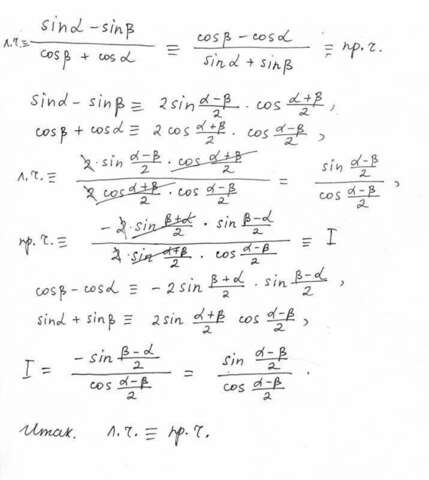 л.ч.≡ (sinα − sinβ)/(cosβ + cosα) ≡ (cosβ − cosα)/(sinα + sinβ) ≡ пр.ч.
sinα − sinβ ≡ 2 sin (α−β)/2 · cos (α+β)/2,
cosβ + cosα ≡ 2 cos (α+β)/2 · cos (α−β)/2,
л.ч. ≡ (2 · sin (α−β)/2 · cos (α+β)/2)/(2 cos (α+β)/2 · cos (α−β)/2) = (sin (α−β)/2)/(cos (α−β)/2),
пр.ч. ≡ (−2 · sin (β+α)/2 · sin (β−α)/2)/(2 · sin (α+β)/2 · cos (α−β)/2) ≡ I
cosβ − cosα ≡ −2 sin (β+α)/2 · sin (β−α)/2,
sinα + sinβ ≡ 2 sin (α+β)/2 cos (α−β)/2,
I = (−sin (β−α)/2)/(cos (α−β)/2) = (sin (α−β)/2)/(cos (α−β)/2).
Итак. л.ч. ≡ пр.ч.